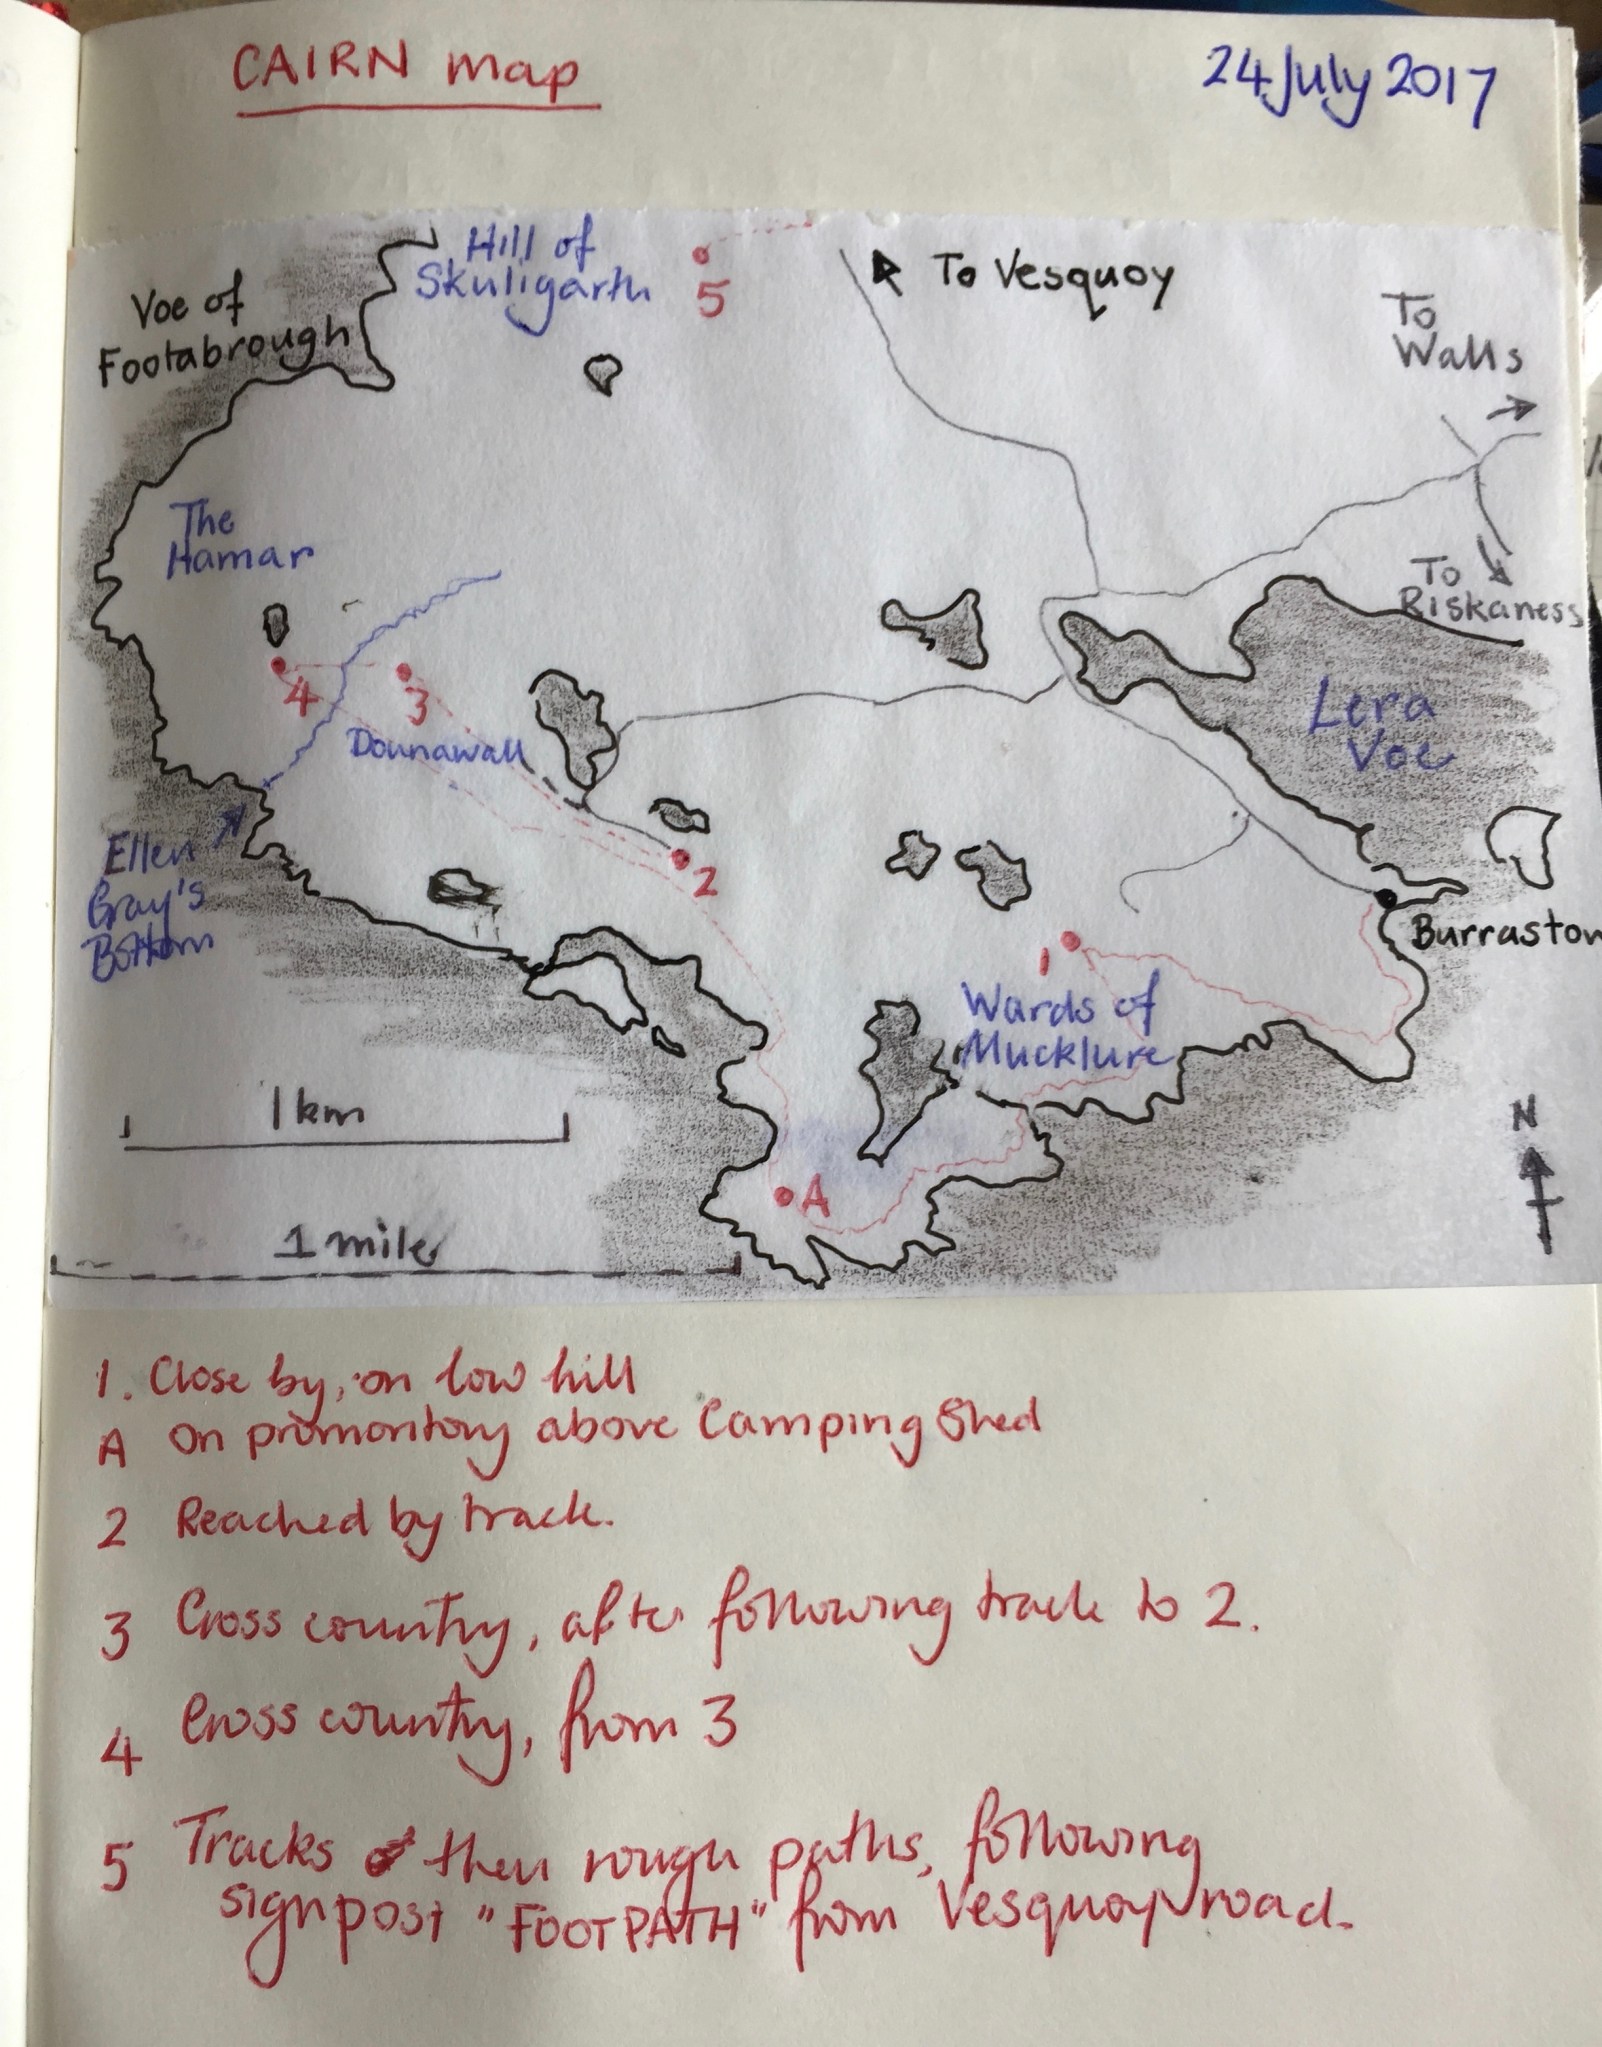 CAIRN map
24 July 2017
Hill of
Skuligarth
5
To Vesquoy
Voe of
Footabrough
To
Walls
The
Hamar
To
Riskaness
4
3
Lera
Voe
Dounawall
2
Ellen
Gray's
Bottom
Burraston
1
Wards of
Mucklure
1km
N
A
1 mile
1. Close by, on low hill
A On promontory above Camping Shed
2 Reached by track.
3 Cross country, after following track to 2.
4 Cross country, from 3
5 Tracks then rough paths, following
signpost "FOOTPATH" from Vesquoy road.